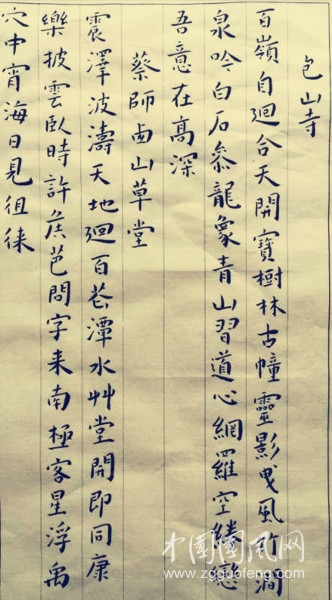 包山寺
百嶺自迴合天開寶樹林古幢靈影曳風竹澗
泉吟白石叅龍象青山習道心網羅空繾戀
吾意在高深
蔡師卤山草堂
震澤波濤天地迴百花潭水艸堂開即同康
樂披雲臥時許侯芭問字来南極客星浮禹
穴中宵海日見徂徠
中国国风网
www.zgguofeng.com